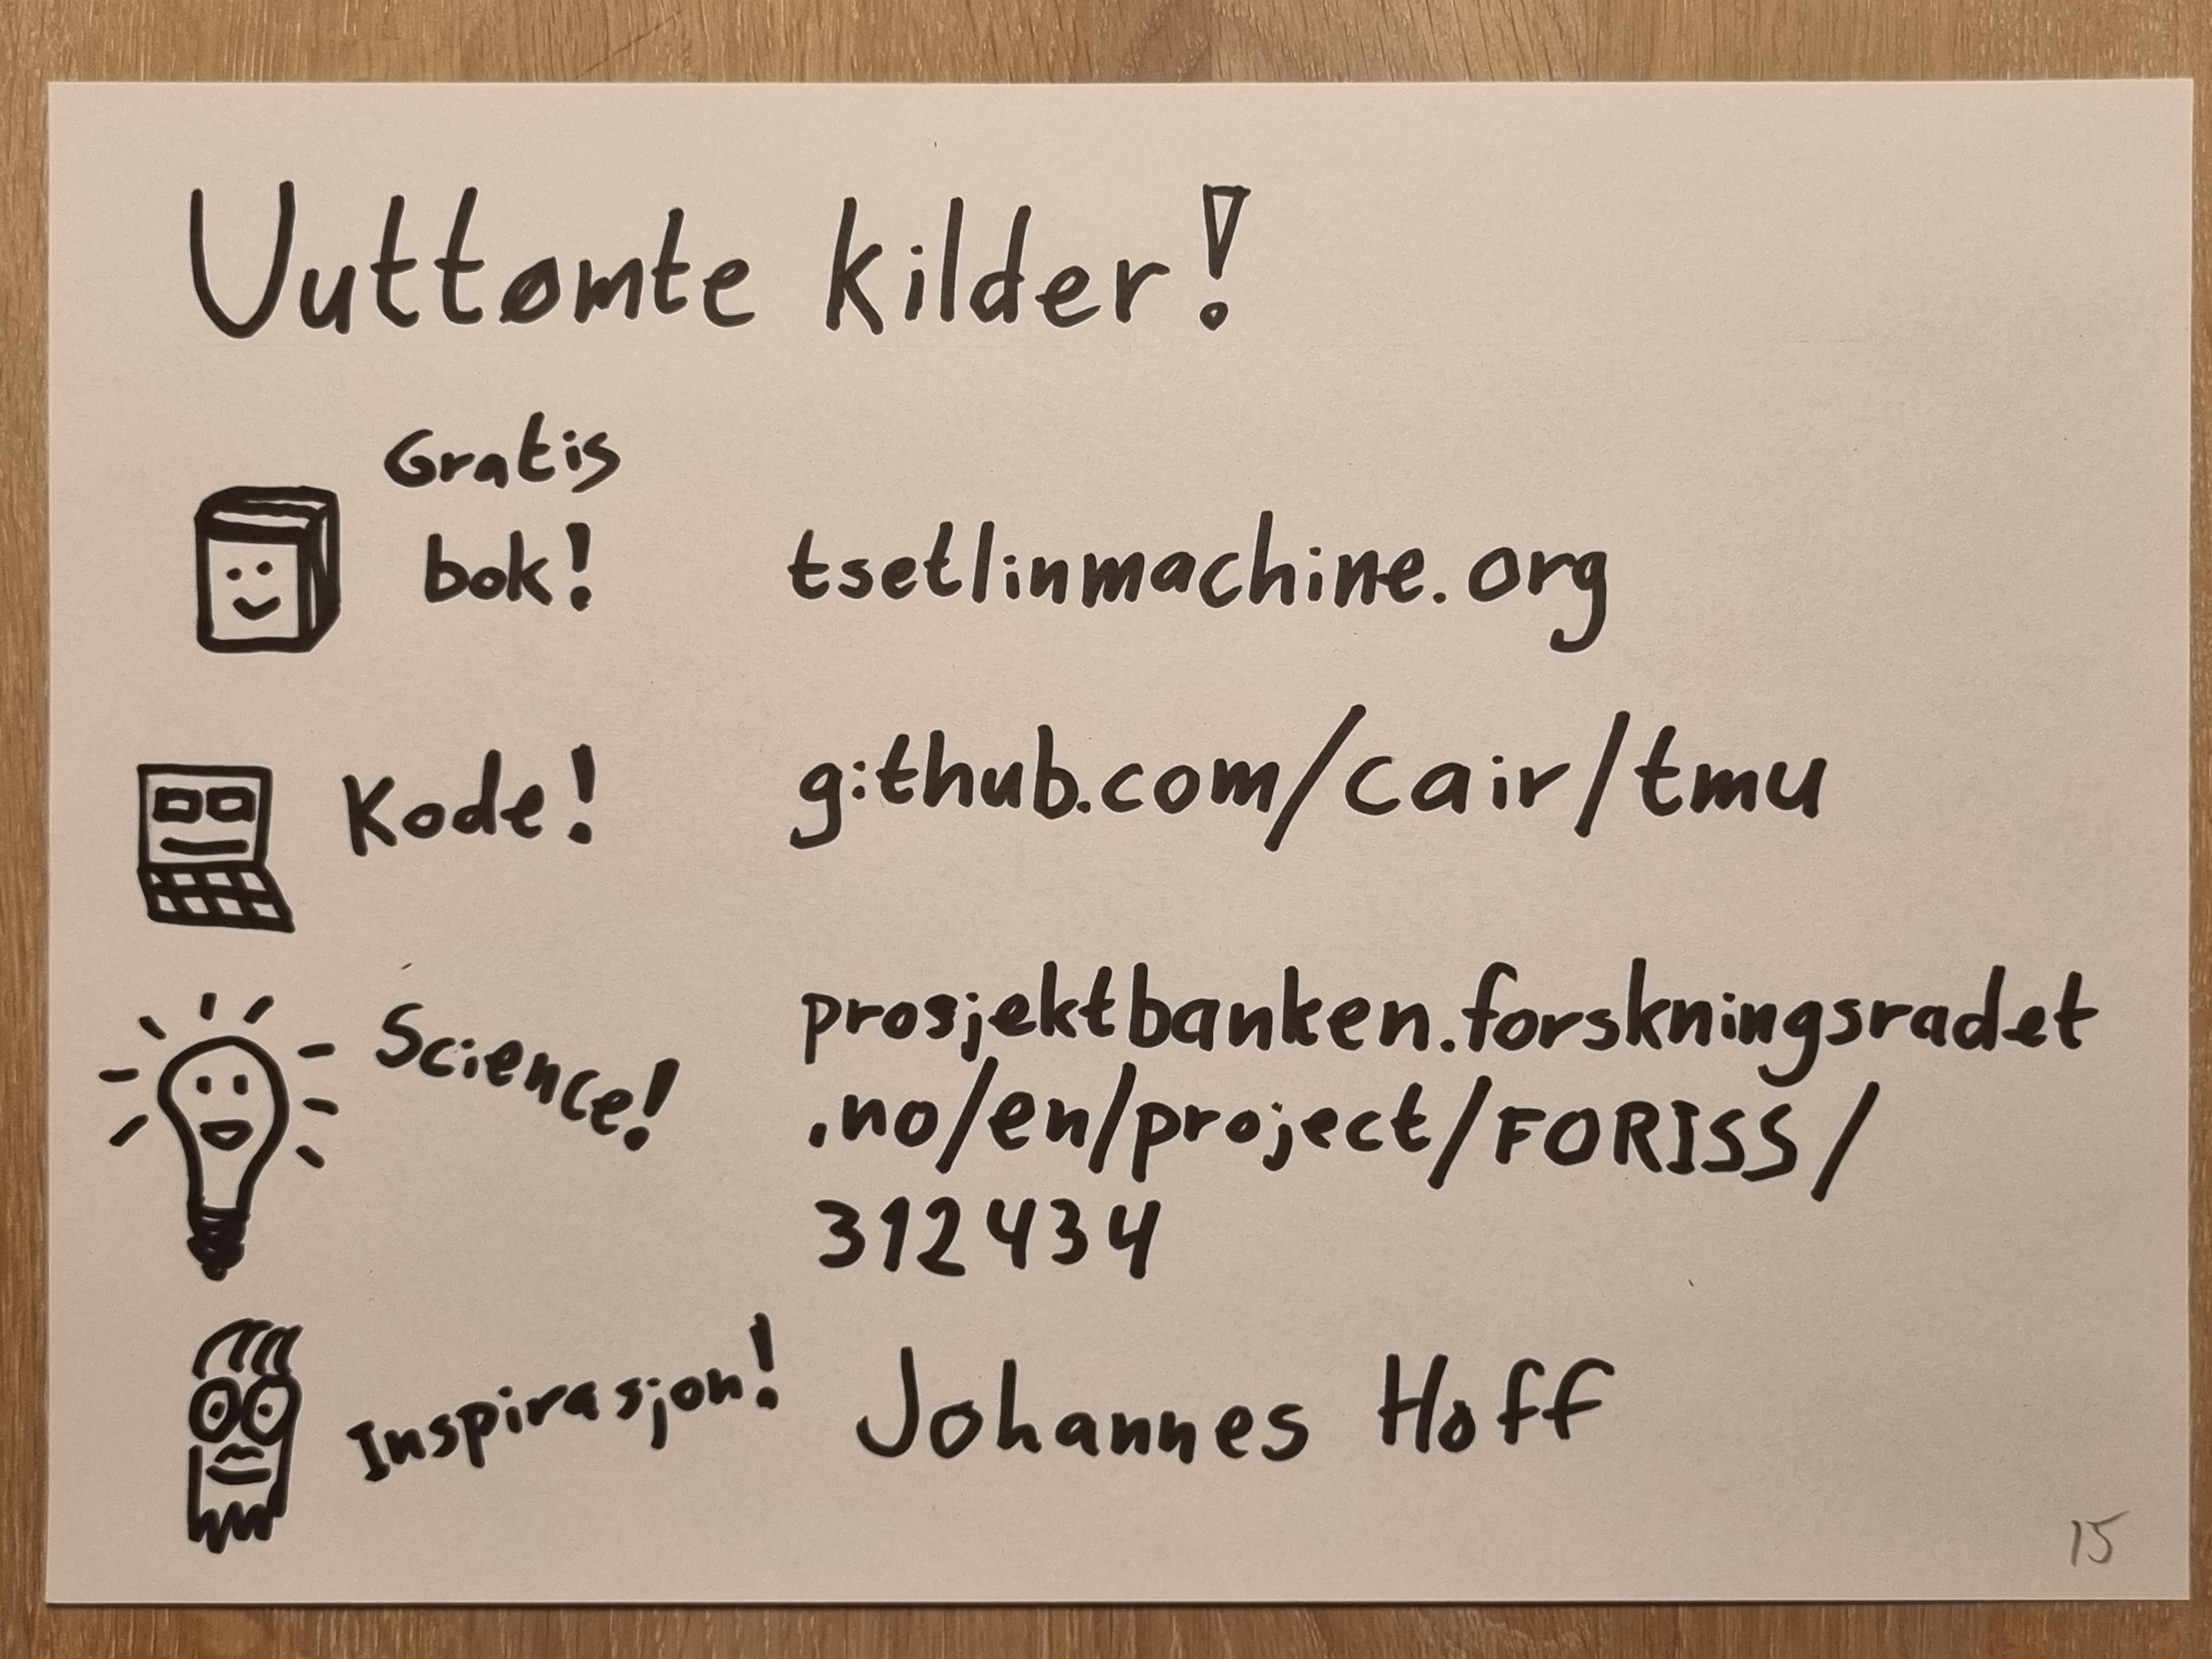 Uuttømte kilder!
Gratis
bok!
tsetlinmachine.org
Kode!
github.com/cair/tmu
Science!
prosjektbanken.forskningsradet
.no/en/project/FORISS/
312434
Inspirasjon!
Johannes Hoff
15